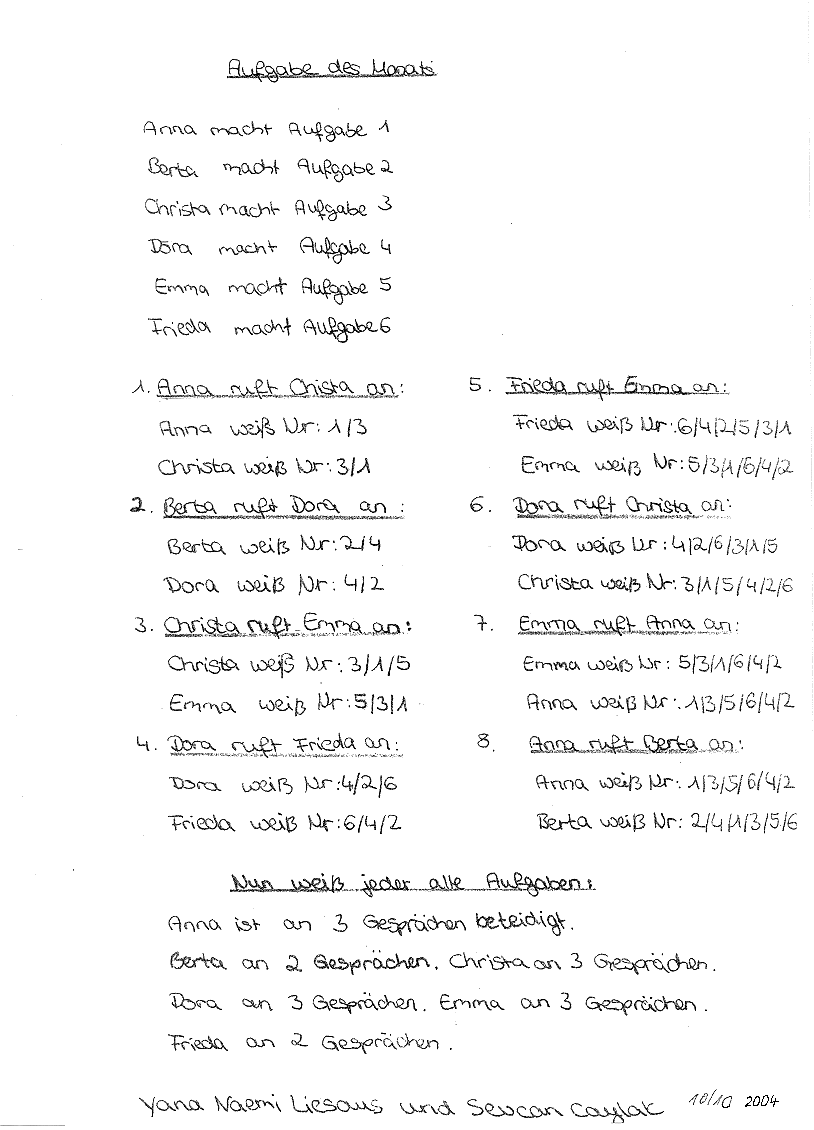 Aufgabe des Monats
Anna macht Aufgabe 1
Berta macht Aufgabe 2
Christa macht Aufgabe 3
Dora macht Aufgabe 4
Emma macht Aufgabe 5
Frieda macht Aufgabe 6
1. Anna ruft Chista an:
Anna weiß Nr: 1/3
Christa weiß Nr: 3/1
2. Berta ruft Dora an :
Berta weiß Nr: 2/4
Dora weiß Nr: 4/2
3. Christa ruft Emma an:
Christa weiß Nr: 3/1/5
Emma weiß Nr: 5/3/1
4. Dora ruft Frieda an:
Dora weiß Nr: 4/2/6
Frieda weiß Nr: 6/4/2
5. Frieda ruft Emma an:
Frieda weiß Nr: 6/4/2/5/3/1
Emma weiß Nr: 5/3/1/6/4/2
6. Dora ruft Christa an:
Dora weiß Nr: 4/2/6/3/1/5
Christa weiß Nr: 3/1/5/4/2/6
7. Emma ruft Anna an:
Emma weiß Nr: 5/3/1/6/4/2
Anna weiß Nr: 1/3/5/6/4/2
8. Anna ruft Berta an:
Anna weiß Nr: 1/3/5/6/4/2
Berta weiß Nr: 2/4/1/3/5/6
Nun weiß jeder alle Aufgaben:
Anna ist an 3 Gesprächen beteidigt.
Berta an 2 Gesprächen. Christa an 3 Gesprächen.
Dora an 3 Gesprächen. Emma an 3 Gesprächen.
Frieda an 2 Gesprächen.
Yana Naemi Liesaus und Sevcan Caylak 10/10 2004